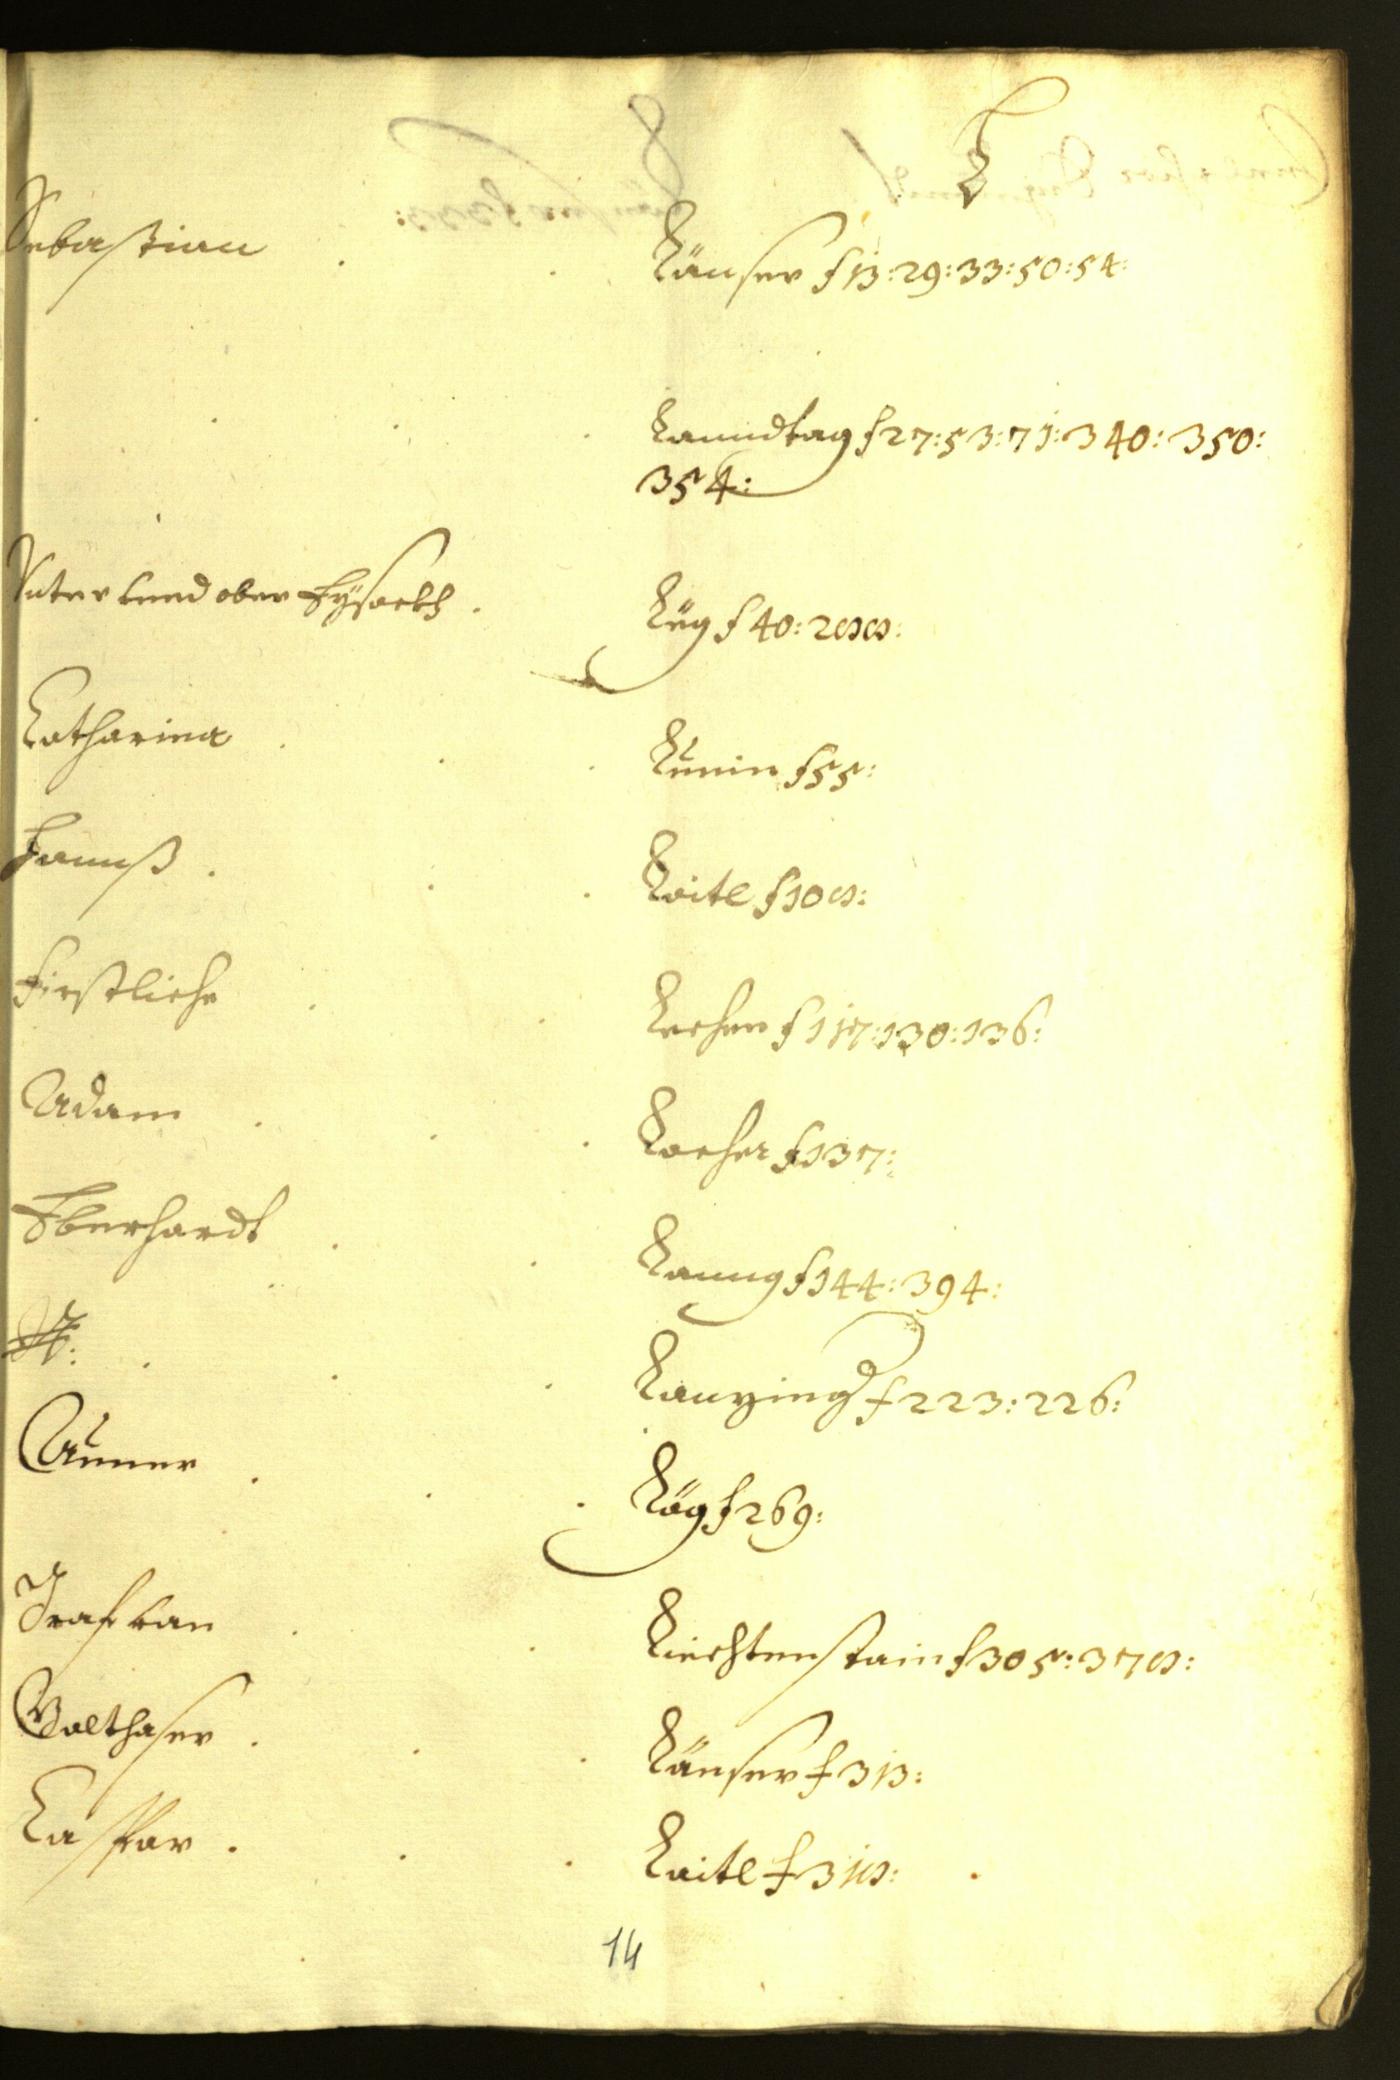 L
Sebastian . . Länser f 13: 29: 33: 50: 54:
. . . . Lanndtag f 27: 53: 71: 340: 350:
354:
Vnter vnnd ober Eÿsackh . Lüg f 40: 288:
Catharina . . . Lunin f 55:
Hannß . . . Laitl f 108:
Firstliche . . Lechen f 117: 130: 136:
Adam . . . Locher f 137:
Eberhardt . . Lanng f 144: 394:
. . . Lanzing f 223: 226:
. . . Läg f 269:
. . Liechtenstain f 305: 378:
Balthaser . . . Länser f 313:
Caspar . . . Laitl f 318:
14